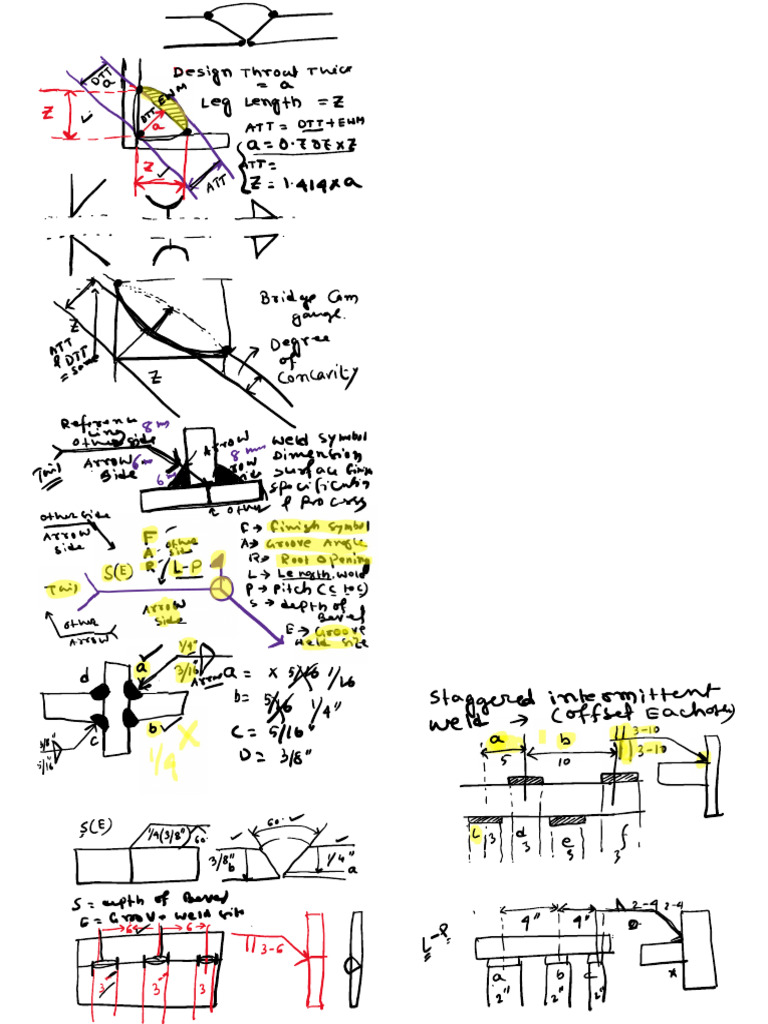 Design Throat Thick
= a
Leg Length = Z
DTT
a
EWM
DTT
a
Z
ATT = DTT + EWM
a = 0.707 x Z
ATT =
Z = 1.414 x a
Z
ATT
Bridge Cam
gauge.
Degree
of
Concavity
Z
ATT
& DTT
= same
Z
Reference
Line
other side
8 m
Arrow
6 m
side
Tail
Arrow
8 mm
6 m
side
other
weld symbol
Dimension
Surface finish
Specification
& Process
other side
Arrow
side
F
A
R
other
side
L-P
S(E)
Tail
Arrow
side
other
Arrow
F → finish symbol
A → Groove Angle
R → Root opening
L → Length weld
P → Pitch (c to c)
S → depth of
Bevel
E → Groove
weld size
a
1/4"
3/16"
Arrow
d
b
c
3/8"
5/16"
x
1/4
a = x 5/16 1/16
b = 5/16 1/4"
C = 5/16"
D = 3/8"
Staggered intermittent
weld → (offset Each other)
a
b
3-10
3-10
5
10
L
3
d
3
e
3
f
3
S(E)
1/4(3/8")
60
60
3/8"
b
1/4"
a
S = depth of Bevel
E = Groove weld size
6
6
3"
3"
3
3-6
4"
4"
2-4
2-4
L-P
a
b
c
2"
2"
2"
x